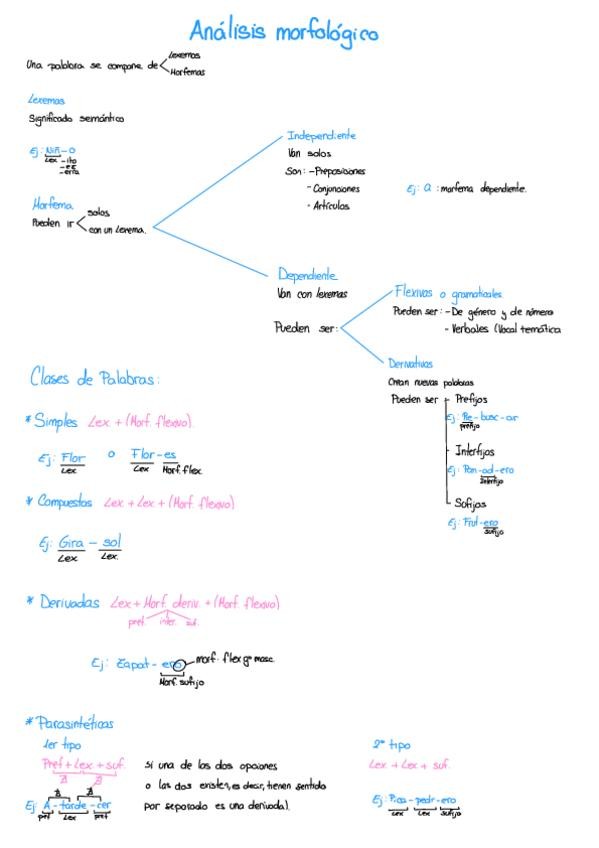 Análisis morfológico
Una palabra se compone de
Lexemas
Morfemas
Lexemas
Significado semántico
Ej: Niñ-o
Lex -ito
-ez
-ería
Morfema
Pueden ir
solos
con un lexema.
Independiente
Van solos
Son: -Preposiciones
-Conjunciones
- Artículos
Ej: a : morfema dependiente.
Dependiente
Van con lexemas
Pueden ser:
Flexivos o gramaticales
Pueden ser: -De género y de número
- Verbales (Vocal temática
Derivativas
Crean nuevas palabras
Pueden ser
Prefijos
Ej: Re-busc-ar
prefijo
Interfijos
Ej: Pan-ad-ero
Interfijo
Sufijos
Ej: Frut-ero
sufijo
Clases de Palabras:
* Simples Lex + (Morf. flexivo).
Ej: Flor o Flor-es
Lex Lex Morf. flex.
* Compuestas Lex + Lex + (Morf. flexivo)
Ej: Gira - sol
Lex Lex.
* Derivadas Lex + Morf. deriv. + (Morf. flexivo)
pref. inter. suf.
Ej: Zapat-ero
morf. flex gº masc.
Morf. sufijo
* Parasintéticas
1er tipo
Pref + Lex + suf.
Si una de las dos opciones
o las dos existen, es decir, tienen sentido
por separado es una derivada).
Ej: A - tarde - cer
pref Lex pref
2º tipo
Lex + Lex + suf.
Ej: Pica - pedr - ero
Lex Lex Sufijo